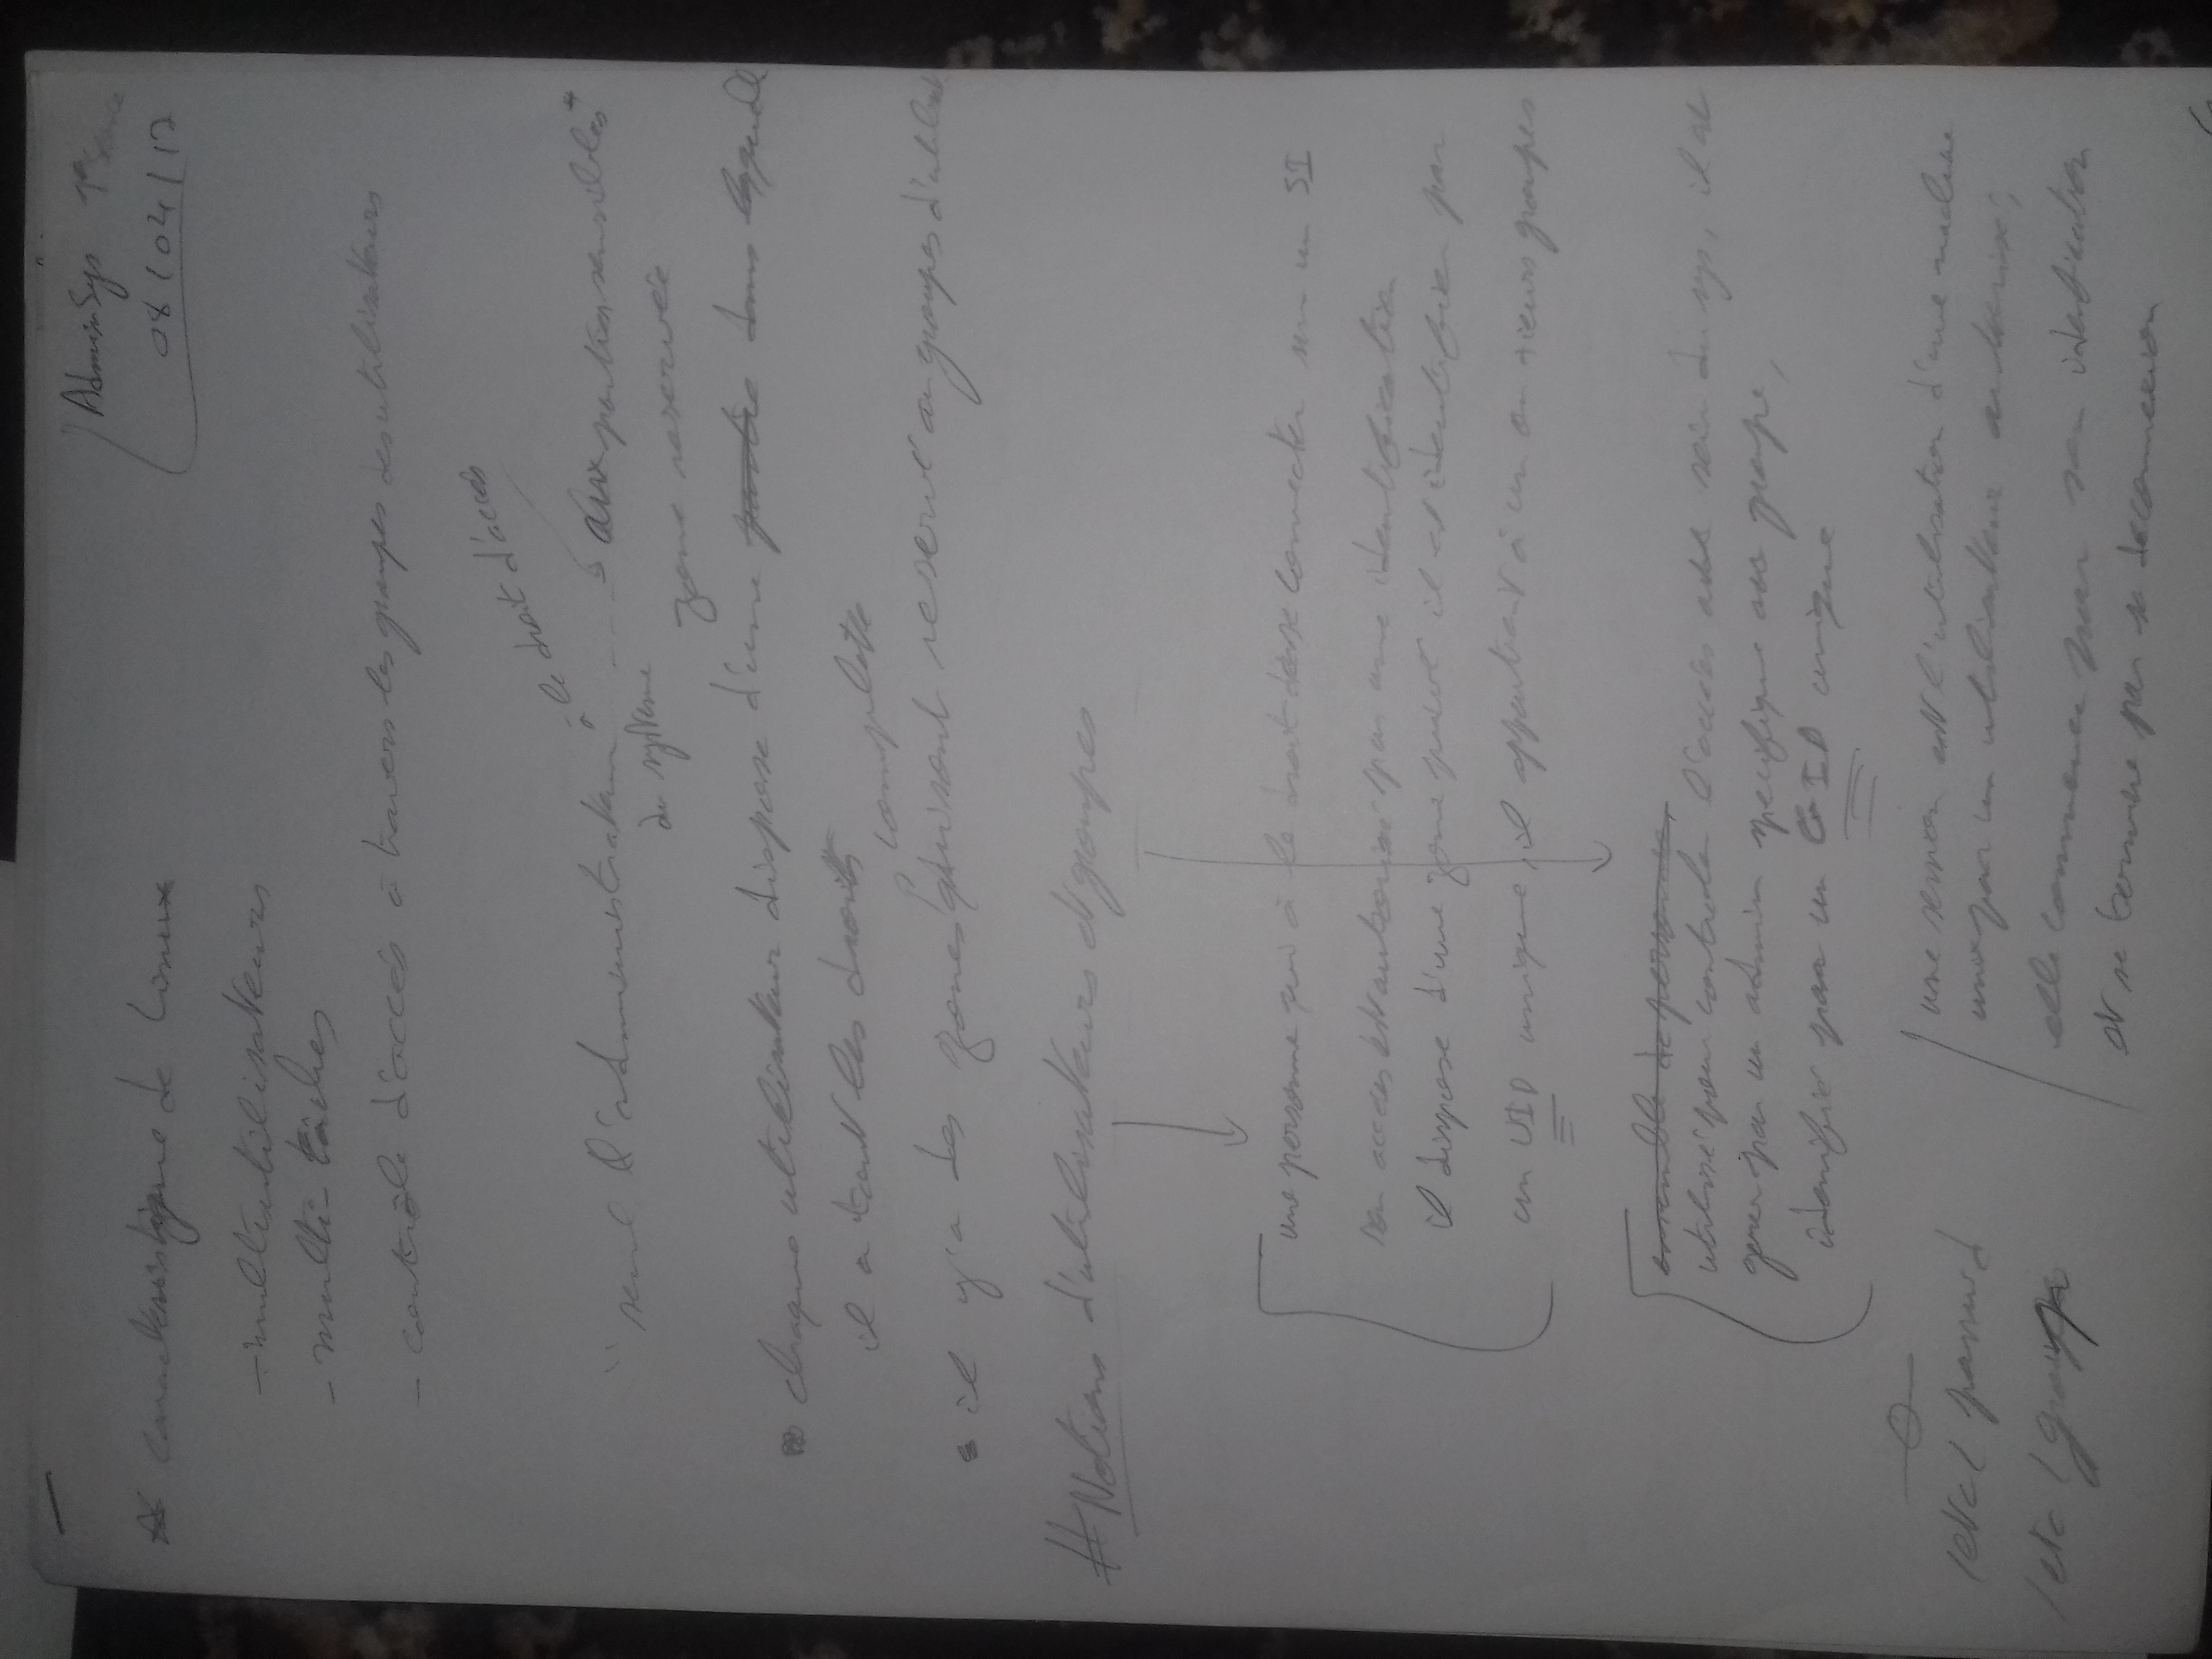 AdminSys 1ère Séance
08/04/17
caracteristique de Linux
- multiutilisateurs
- multi-tâches
- contrôle d'accés à travers les groupes des utilisateurs
à le droit d'accés
"seul l'administrateur aux parties sensibles"
du système
zone reservée
chaque utilisateur dispose d'une partie dans laquelle
il a tout les droits
complette
il y'a des zones qui sont reservé au groupes d'utilisat
# Notions d'utilisateurs et groupes
une personne qui à le droit de se connecter sur un SI
son acces est autorisé par une identification
il dispose d'une zone privé il est identifier par
un UID unique, il appartient à un ou +ieurs groupes
ensemble de personnes,
utilisé pour controler l'accés au sein du sys, il est
gerer par un admin specifique au groupe,
idenifié par un GID unique
/etc/passwd
/etc/group
une session est l'utilisation d'une machine
unix par un utilisateur autorisé,
elle commence par son identification
et se termine par sa deconnexion